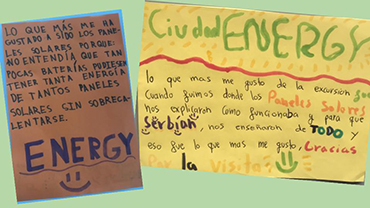 LO QUE MÁS ME HA
GUSTADO A SIDO LOS PANE-
LES SOLARES PORQUE
NO ENTENDÍA QUE TAN
POCAS BATERÍAS PUDIESEN
TENER TANTA ENERGÍA
DE TANTOS PANELES
SOLARES SIN SOBRECA-
LENTARSE.
ENERGY
Ciudad ENERGY
lo que mas me gusto de la excursion fue
Cuando fuimos donde los Paneles solares
nos explicaron como funcionaba y para que
serbian, nos enseñaron de TODO y
eso fue lo que mas me gusto, Gracias
Por la visita